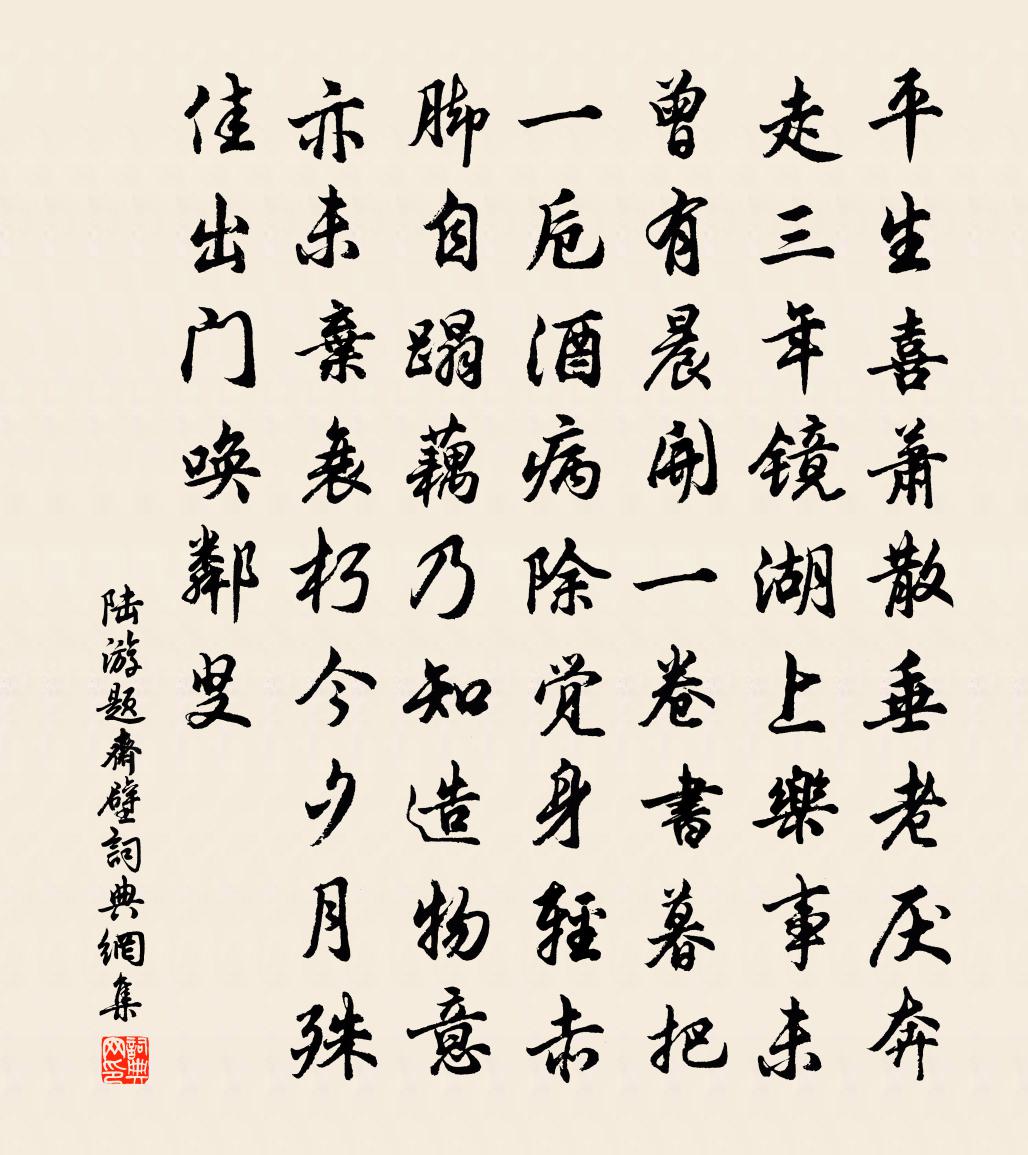 平生喜萧散垂老厌奔
走三年镜湖上樂事未
曾有晨開一卷書暮把
一卮酒病除觉身輕赤
脚自蹋藕乃知造物意
亦未棄衰朽今夕月殊
佳出门唤鄰叟
陆游题齋壁詞典網集
詞典网印